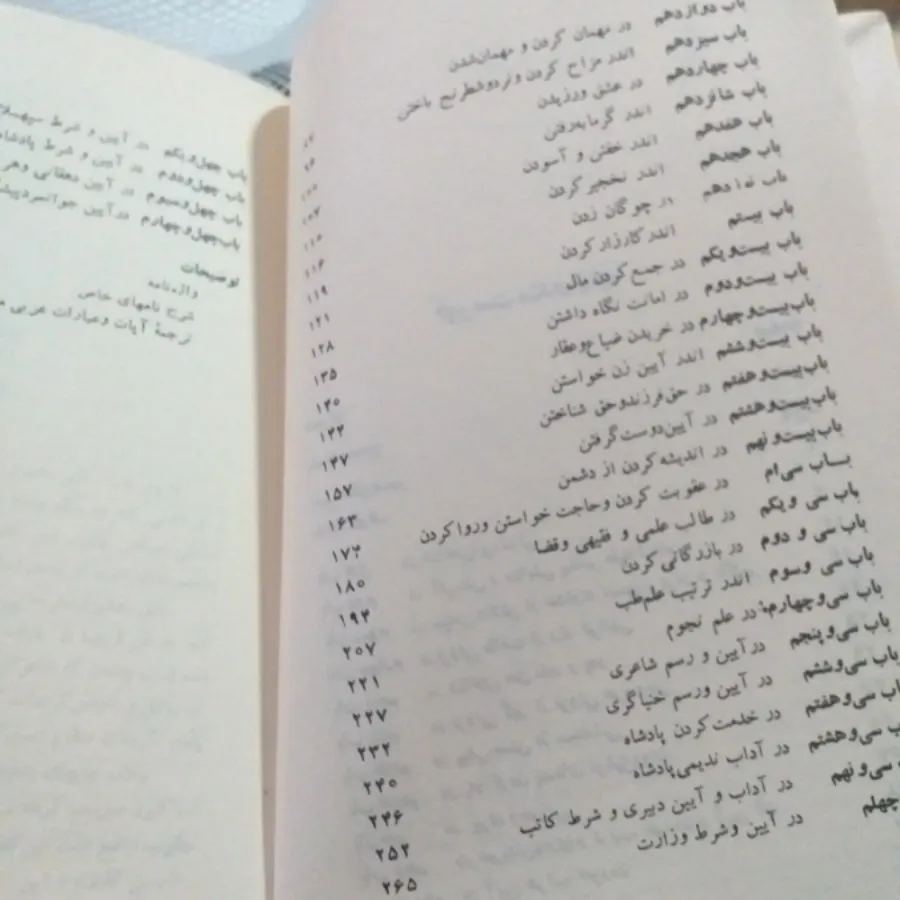 باب دوازدهم در مهمان کردن و مهمان‌شدن
باب سیزدهم اندر مزاح کردن و نردوشطرنج باختن
باب چهاردهم در عشق ورزیدن
باب شانزدهم اندر گرما به‌رفتن
باب هفدهم اندر خفتن و آسودن
باب هجدهم اندر نخجیر کردن
باب نوزدهم در چوگان زدن ۱۱۶
باب بیستم اندر کارزار کردن ۱۱۹
باب بیست‌ویکم در جمع کردن مال ۱۲۱
باب بیست‌ودوم در امانت نگاه داشتن ۱۲۸
باب‌بیست‌و‌چهارم در خریدن ضیاع‌و‌عقار
باب بیست‌وششم اندر آیین زن خواستن
باب‌بیست‌وهفتم در حق‌فرزندوحق شناختن
باب‌بیست‌وهشتم در آیین‌دوست‌گرفتن ۱۴۷
باب‌بیست‌ونهم در اندیشه‌کردن از دشمن ۱۵۷
بــاب سی‌ام در عقوبت کردن وحاجت خواستن ورواکردن ۱۶۳
باب سی ویکم در طالب علمی و فقیهی وقضا ۱۷۳
باب سی و دوم در بازرگانی کردن ۱۸۰
باب سی وسوم اندر ترتیب علم‌طب
باب سی‌وچهارم در علم نجوم ۲۰۷
باب سی‌وپنجم در آیین و رسم شاعری ۲۲۱
باب سی‌وششم در آیین ورسم خنیاگری ۲۲۷
باب سی‌وهفتم در خدمت‌کردن پادشاه ۲۳۲
سی‌وهشتم در آداب ندیمی‌پادشاه ۲۴۰
سی‌ونهم در آداب و آیین دبیری و شرط کاتب ۲۴۶
چهلم در آیین وشرط وزارت ۲۵۲
۲۶۵
باب چهل‌ویکم در آیین و شرط
باب چهل‌ودوم در آیین و شرط
باب چهل‌وسوم در آیین دهقانی وهر
باب‌چهل‌وچهارم درآیین جوانمردپیشگ
توضیحات
واژه‌نامه
شرح نامهای خاص
ترجمهٔ آیات وعبارات عربی